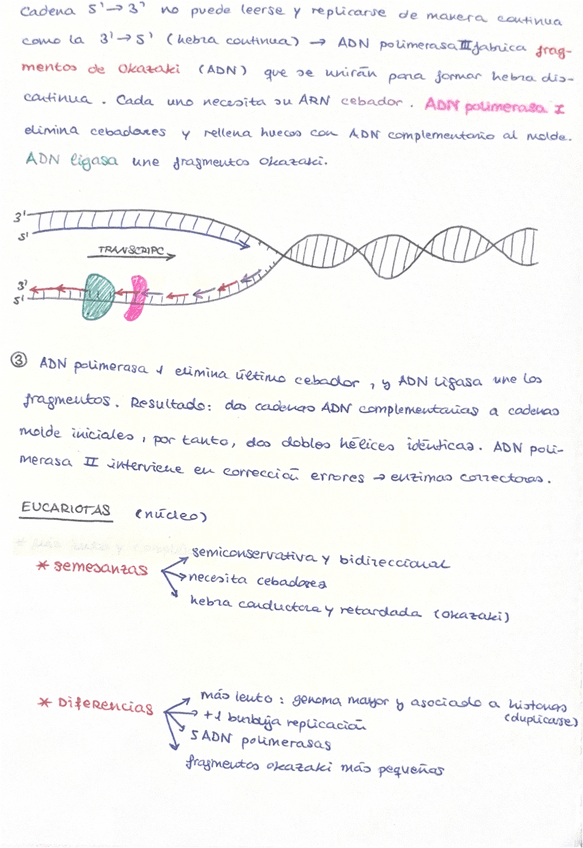 Cadena 5'→3' no puede leerse y replicarse de manera continua
como la 3'→5' (hebra continua) → ADN polimerasa III fabrica frag-
mentos de Okazaki (ADN) que se unirán para formar hebra dis-
continua. Cada uno necesita su ARN cebador. ADN polimerasa I
elimina cebadores y rellena huecos con ADN complementario al molde.
ADN ligasa une fragmentos Okazaki.
3'
5'
TRANSCRIPC
3'
5'
③ ADN polimerasa 1 elimina último cebador, y ADN ligasa une los
fragmentos. Resultado: dos cadenas ADN complementarias a cadenas
molde iniciales, por tanto, dos dobles hélices idénticas. ADN poli-
merasa II interviene en corrección errores → enzimas correctoras.
EUCARIOTAS (núcleo)
semiconservativa y bidireccional
* semejanzas
necesita cebadores
hebra conductora y retardada (Okazaki)
más lento: genoma mayor y asociado a histonas
(duplicarse)
* Diferencias
+1 burbuja replicación
5 ADN polimerasas
fragmentos okazaki más pequeños